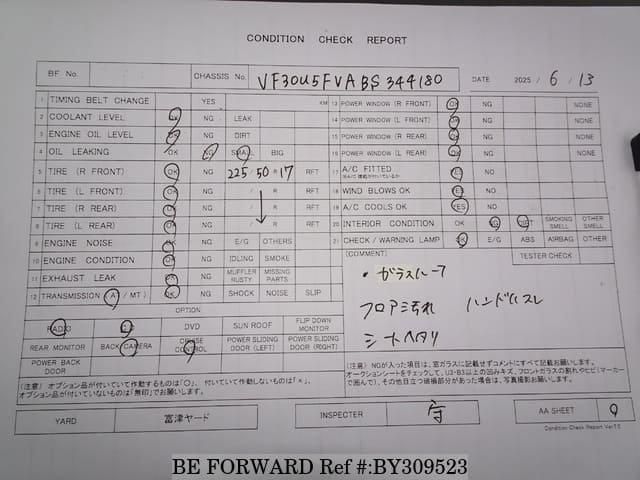 CONDITION CHECK REPORT
BF No. CHASSIS No. VF30U5FVABS344180 DATE 2025 / 6 / 13
1 TIMING BELT CHANGE YES KM
2 COOLANT LEVEL OK NG LEAK
3 ENGINE OIL LEVEL OK NG DIRT
4 OIL LEAKING OK NG SMALL BIG
5 TIRE (R FRONT) OK NG 225 / 50 R 17 RFT
6 TIRE (L FRONT) OK NG / R RFT
7 TIRE (R REAR) OK NG / R RFT
8 TIRE (L REAR) OK NG / R RFT
9 ENGINE NOISE OK NG E/G OTHERS
10 ENGINE CONDITION OK NG IDLING SMOKE
11 EXHAUST LEAK OK NG MUFFLER RUSTY MISSING PARTS
12 TRANSMISSION (A / MT) OK NG SHOCK NOISE SLIP
13 POWER WINDOW (R FRONT) OK NG NONE
14 POWER WINDOW (L FRONT) OK NG NONE
15 POWER WINDOW (R REAR) OK NG NONE
16 POWER WINDOW (L REAR) OK NG NONE
17 A/C FITTED YES NO
18 WIND BLOWS OK YES NO
19 A/C COOLS OK YES NO
20 INTERIOR CONDITION OK NG DIRT SMOKING SMELL OTHER SMELL
21 CHECK / WARNING LAMP OK E/G ABS AIRBAG OTHERS
TESTER CHECK
(COMMENT)
フロア汚れ ハンドルスレ
シートヘタリ
OPTION
RADIO CD DVD SUN ROOF FLIP DOWN MONITOR
REAR MONITOR BACK CAMERA CRUISE CONTROL POWER SLIDING DOOR (LEFT) POWER SLIDING DOOR (RIGHT)
POWER BACK DOOR
(注意) オプション品が付いていて作動するものは「○」、付いていて作動しないものは「×」、
オプション品が付いていないものは「無印」でお願いします。
(注意) NGが入った項目は、窓ガラスに記載せずコメントにすべて記載お願いします。
オークションシートをチェックして、U3・B3以上の凹みキズ、フロントガラスの割れやヒビ(マーカーで囲んで)、その他目立つ破損部分があった場合は、写真撮影お願いします。
YARD 富津ヤード INSPECTER 守 AA SHEET 9
Condition Check Report Ver7.5
BE FORWARD Ref #:BY309523